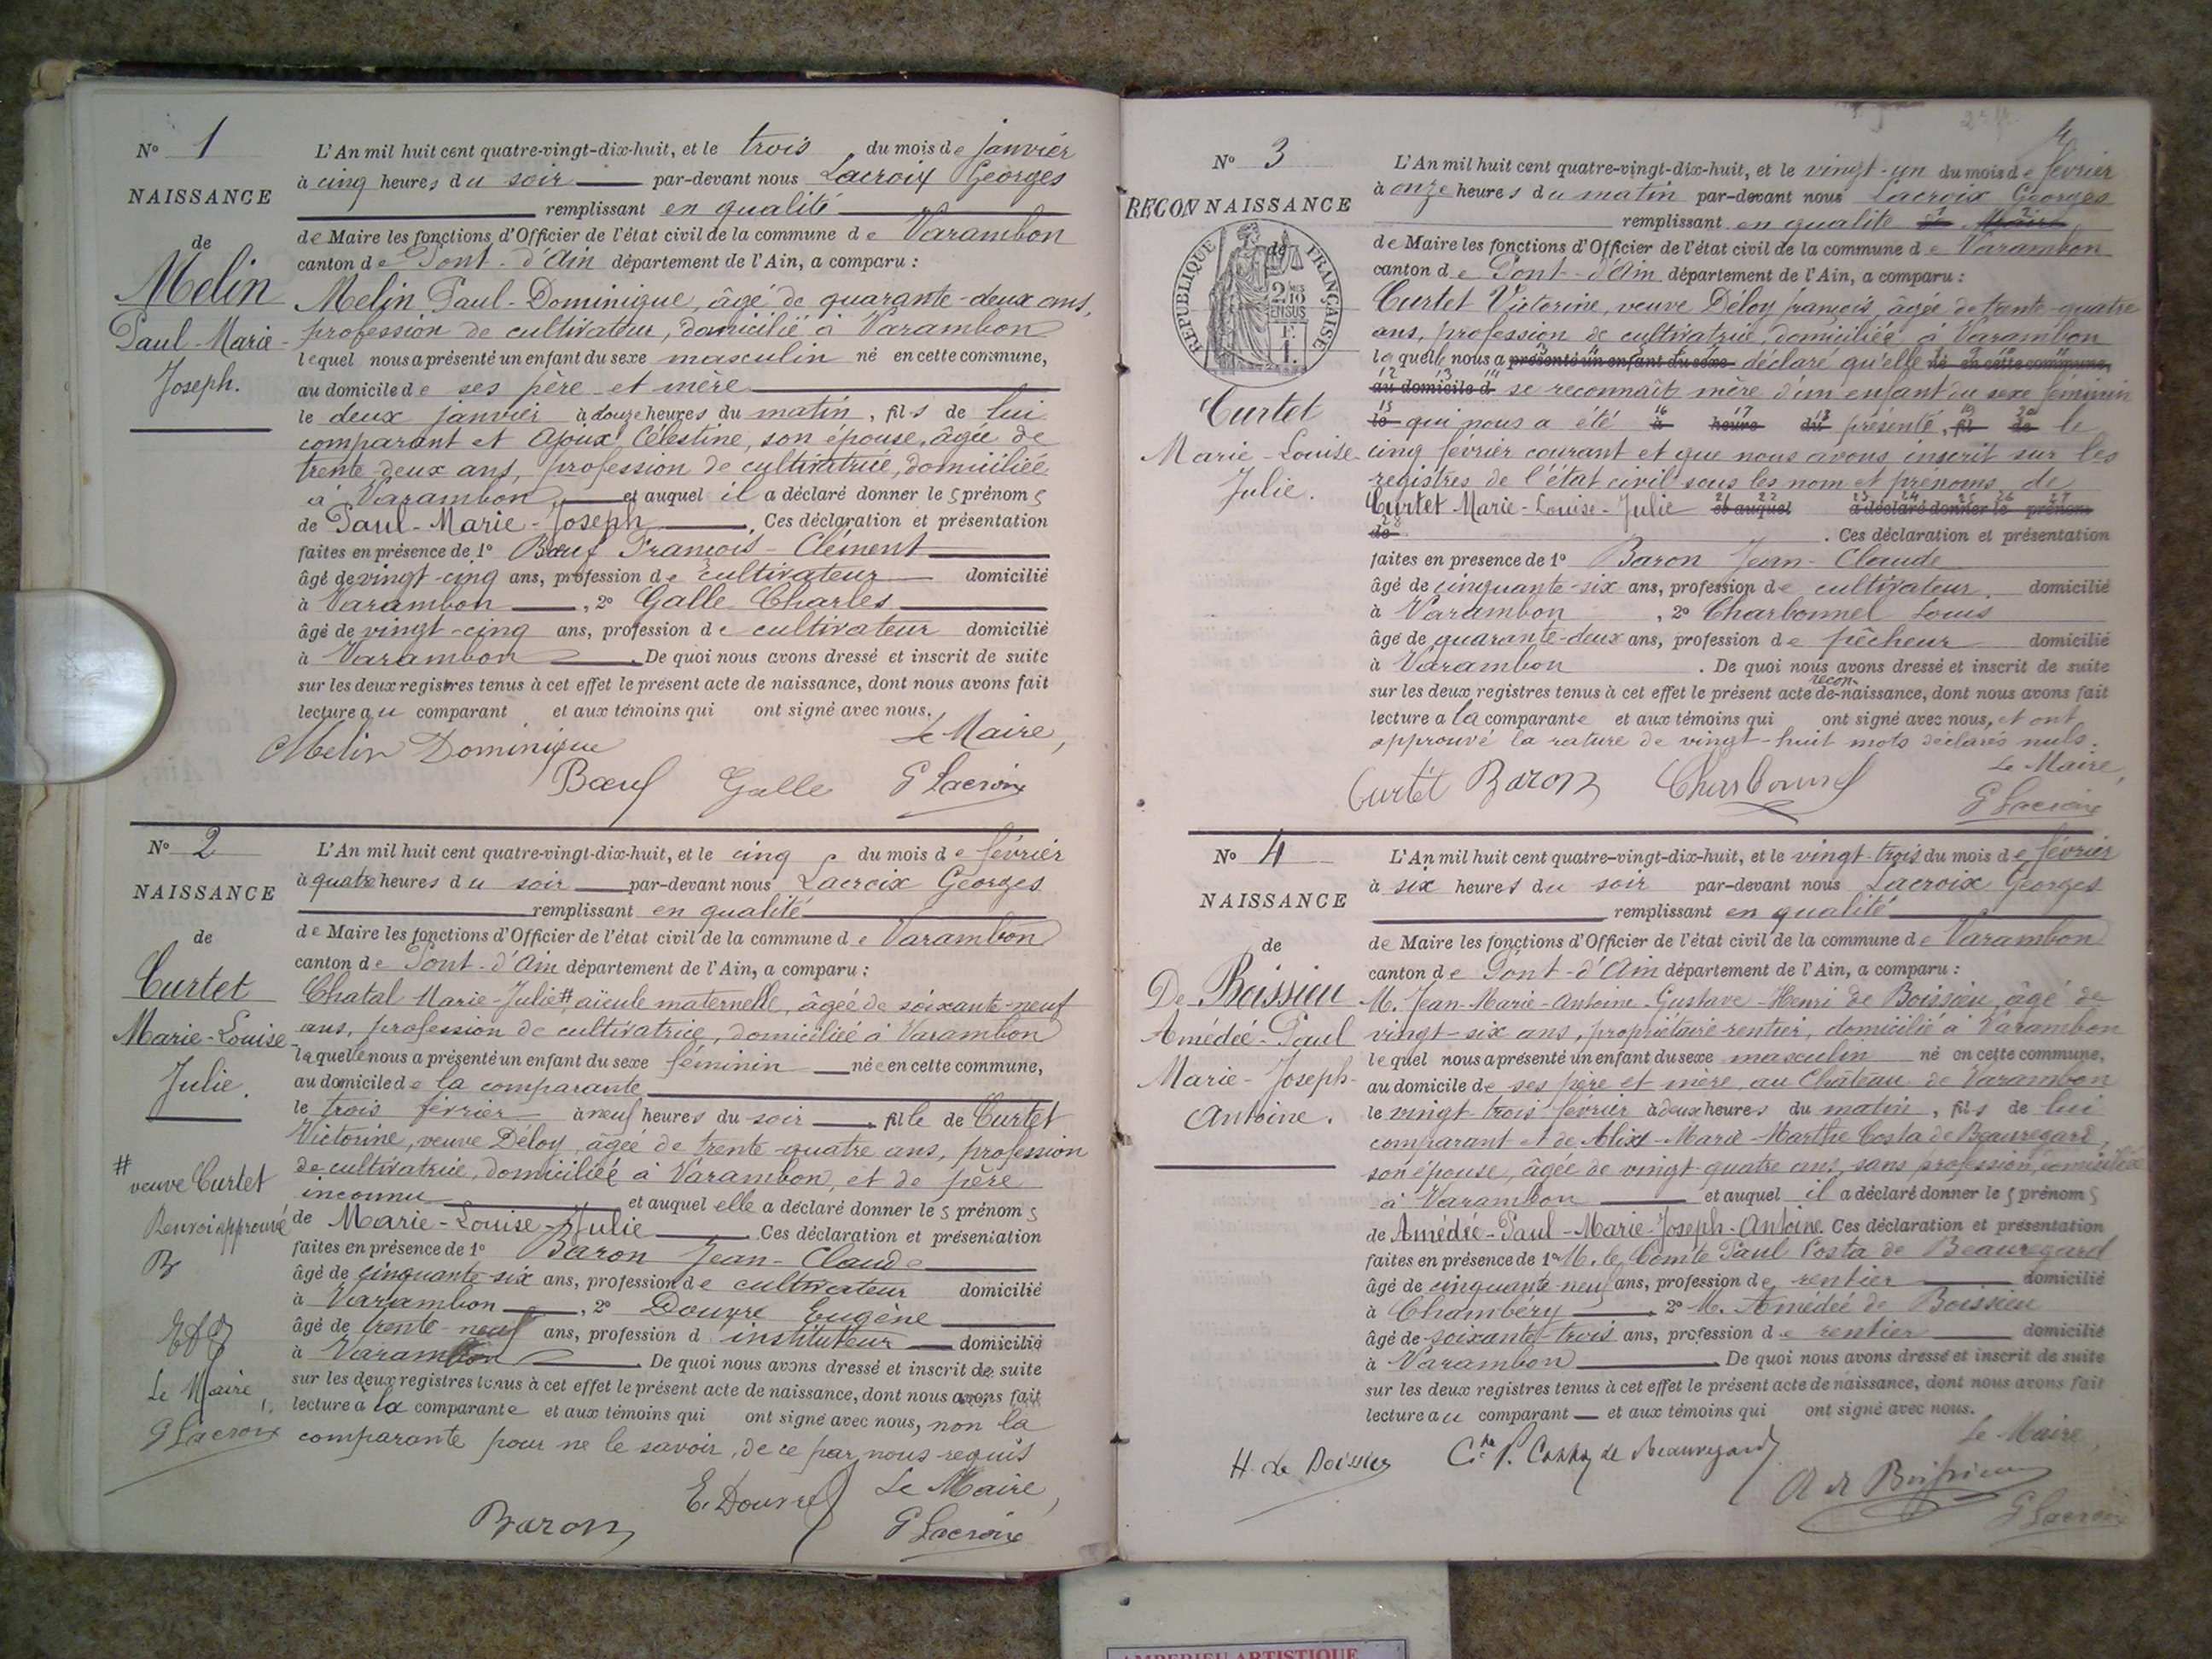 N° 1
NAISSANCE
de
Melin
Paul-Marie-
Joseph.
L'An mil huit cent quatre-vingt-dix-huit, et le trois du mois de janvier
à cinq heures du soir par-devant nous Lacroix Georges
remplissant en qualité
de Maire les fonctions d'Officier de l'état civil de la commune de Varambon
canton de Pont-d'Ain département de l'Ain, a comparu :
Melin Paul-Dominique, âgé de quarante-deux ans,
profession de cultivateur, domicilié à Varambon
lequel nous a présenté un enfant du sexe masculin né en cette commune,
au domicile de ses père et mère
le deux janvier à douze heures du matin, fils de lui
comparant et Ajoux Célestine, son épouse, âgée de
trente-deux ans, profession de cultivatrice, domiciliée
à Varambon et auquel il a déclaré donner les prénoms
de Paul-Marie-Joseph. Ces déclaration et présentation
faites en présence de 1° Bœuf François-Clément
âgé de vingt-cinq ans, profession de cultivateur domicilié
à Varambon, 2° Galle Charles
âgé de vingt-cinq ans, profession de cultivateur domicilié
à Varambon. De quoi nous avons dressé et inscrit de suite
sur les deux registres tenus à cet effet le présent acte de naissance, dont nous avons fait
lecture au comparant et aux témoins qui ont signé avec nous.
Le Maire,
Melin Dominique
Bœuf Galle G Lacroix
N° 2
NAISSANCE
de
Curtet
Marie-Louise-
Julie.
# veuve Curtet
Renvoi approuvé
B
Le Maire,
G Lacroix
L'An mil huit cent quatre-vingt-dix-huit, et le cinq du mois de février
à quatre heures du soir par-devant nous Lacroix Georges
remplissant en qualité
de Maire les fonctions d'Officier de l'état civil de la commune de Varambon
canton de Pont-d'Ain département de l'Ain, a comparu :
Chatal Marie-Julie #, aïeule maternelle, âgée de soixante-neuf
ans, profession de cultivatrice, domiciliée à Varambon
laquelle nous a présenté un enfant du sexe féminin née en cette commune,
au domicile de la comparante
le trois février à neuf heures du soir. fille de Curtet
Victorine, veuve Déloy, âgée de trente-quatre ans, profession
de cultivatrice, domiciliée à Varambon, et de père
inconnu et auquel elle a déclaré donner les prénoms
de Marie-Louise-Julie. Ces déclaration et présentation
faites en présence de 1° Baron Jean-Claude
âgé de cinquante-six ans, profession de cultivateur domicilié
à Varambon, 2° Douvre Eugène
âgé de trente-neuf ans, profession d instituteur domicilié
à Varambon. De quoi nous avons dressé et inscrit de suite
sur les deux registres tenus à cet effet le présent acte de naissance, dont nous avons fait
lecture à la comparante et aux témoins qui ont signé avec nous, non la
comparante pour ne le savoir, de ce par nous requis
E. Douvre Le Maire,
Baron G Lacroix
4
N° 3
RECONNAISSANCE
de
RÉPUBLIQUE FRANÇAISE
2/10 EN SUS
Curtet
Marie-Louise
Julie.
L'An mil huit cent quatre-vingt-dix-huit, et le vingt-un du mois de février
à onze heures du matin par-devant nous Lacroix Georges
remplissant en qualité de Maire
de Maire les fonctions d'Officier de l'état civil de la commune de Varambon
canton de Pont-d'Ain département de l'Ain, a comparu :
Curtet Victorine, veuve Déloy françois, âgée de trente-quatre
ans, profession de cultivatrice, domiciliée à Varambon
laquelle nous a présenté un enfant du sexe déclaré qu'elle né en cette commune,
au domicile d se reconnaît mère d'un enfant du sexe féminin
le qui nous a été à heure du présenté, fil de le
cinq février courant et que nous avons inscrit sur les
registres de l'état civil sous les nom et prénoms de
Curtet Marie-Louise-Julie et auquel a déclaré donner le prénom
de . Ces déclaration et présentation
faites en présence de 1° Baron Jean-Claude
âgé de cinquante-six ans, profession de cultivateur domicilié
à Varambon, 2° Charbonnel Louis
âgé de quarante-deux ans, profession de pêcheur domicilié
à Varambon. De quoi nous avons dressé et inscrit de suite
sur les deux registres tenus à cet effet le présent acte de recon-naissance, dont nous avons fait
lecture a la comparante et aux témoins qui ont signé avec nous, et ont
approuvé la rature de vingt-huit mots déclarés nuls.
Le Maire,
Curtet Baron Charbonnel
G Lacroix
N° 4
NAISSANCE
de
De Boissieu
Amédée-Paul
Marie-Joseph-
Antoine.
L'An mil huit cent quatre-vingt-dix-huit, et le vingt-trois du mois de février
à six heures du soir par-devant nous Lacroix Georges
remplissant en qualité
de Maire les fonctions d'Officier de l'état civil de la commune de Varambon
canton de Pont-d'Ain département de l'Ain, a comparu :
M. Jean-Marie-Antoine-Gustave-Henri de Boissieu, âgé de
vingt-six ans, propriétaire rentier, domicilié à Varambon
lequel nous a présenté un enfant du sexe masculin né en cette commune,
au domicile de ses père et mère, au Château de Varambon
le vingt-trois février à deux heures du matin, fils de lui
comparant et de Alix-Marie-Marthe Costa de Beauregard,
son épouse, âgée de vingt-quatre ans, sans profession, domiciliée
à Varambon et auquel il a déclaré donner les prénoms
de Amédée-Paul-Marie-Joseph-Antoine. Ces déclaration et présentation
faites en présence de 1° M. le Comte Paul Costa de Beauregard
âgé de cinquante-neuf ans, profession de rentier domicilié
à Chambéry, 2° M. Amédée de Boissieu
âgé de soixante-trois ans, profession de rentier domicilié
à Varambon. De quoi nous avons dressé et inscrit de suite
sur les deux registres tenus à cet effet le présent acte de naissance, dont nous avons fait
lecture au comparant et aux témoins qui ont signé avec nous.
Le Maire,
H. de Boissieu Cte P. Costa de Beauregard
A de Boissieu
G Lacroix
AMPERIEU ARTISTIQUE